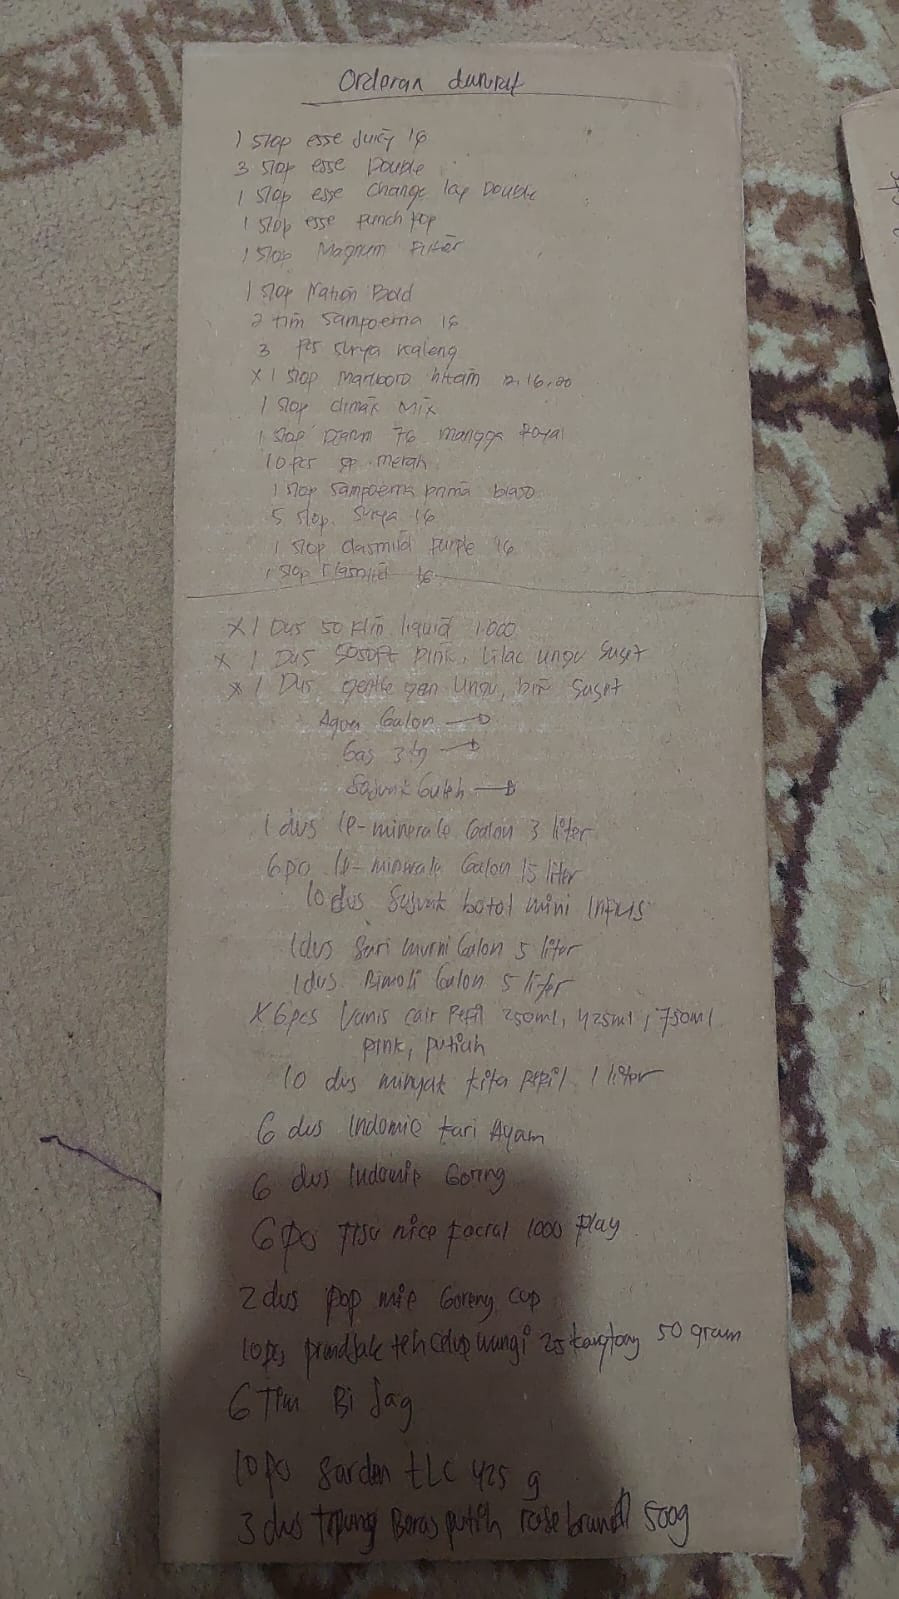 Orderan darurat
1 slop esse Juicy 16
3 slop esse Double
1 slop esse change Double
1 slop esse Punch pop
1 slop Magnum Filter
1 slop Nation Bold
2 tim Sampoerna 16
3 pcs surya kaleng
x 1 slop Marlboro hitam 12.16.20
1 slop climax Mix
1 slop Djarum 76 mangga Royal
10 pcs sp merah
1 slop Sampoerna prima
5 slop Surya 16
1 slop clasmild Purple 16
1 slop clasmild 16
x 1 Dus 50 Klin liquid 1000
x 1 Dus SOSOFT pink, Lilac ungu Suset
x 1 Dus gentle gen Ungu, biru Suset
Aqua Galon
Gas 3 kg
Sejunk Galon
1 dus le-minerale Galon 3 liter
6 pc le-minerale Galon 15 liter
10 dus botol mini Infus
1 dus Sari murni Galon 5 liter
1 dus Bimoli Galon 5 liter
x 6 pcs Vanis cair Refil 250ml, 425ml, 750ml
pink, putiah
10 dus minyak kita Refil 1 liter
6 dus Indomie kari Ayam
6 dus Indomie Goreng
6 pc Tisu nice Facial 1000 Play
2 dus pop mie Goreng cup
10 pcs prendjak teh celup wangi 25 kangtong 50 gram
6 Tim Bi Jag
10 pc Sarden tLC 425 g
3 dus Tepung Beras putih rose brand 500g